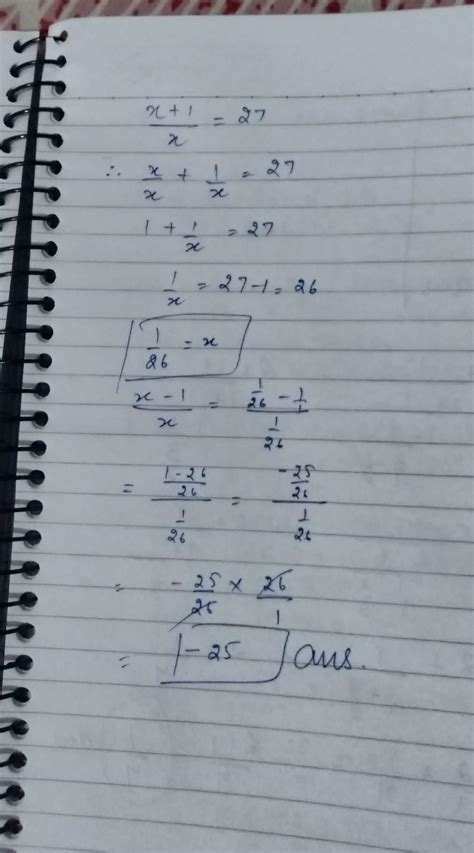 x+1/x = 27
∴ x/x + 1/x = 27
1 + 1/x = 27
1/x = 27-1 = 26
1/26 = x
x-1/x = 1/26 - 1/1 / 1/26
= 1-26/26 / 1/26 = -25/26 / 1/26
= -25/26 × 26/1
= -25 ans.